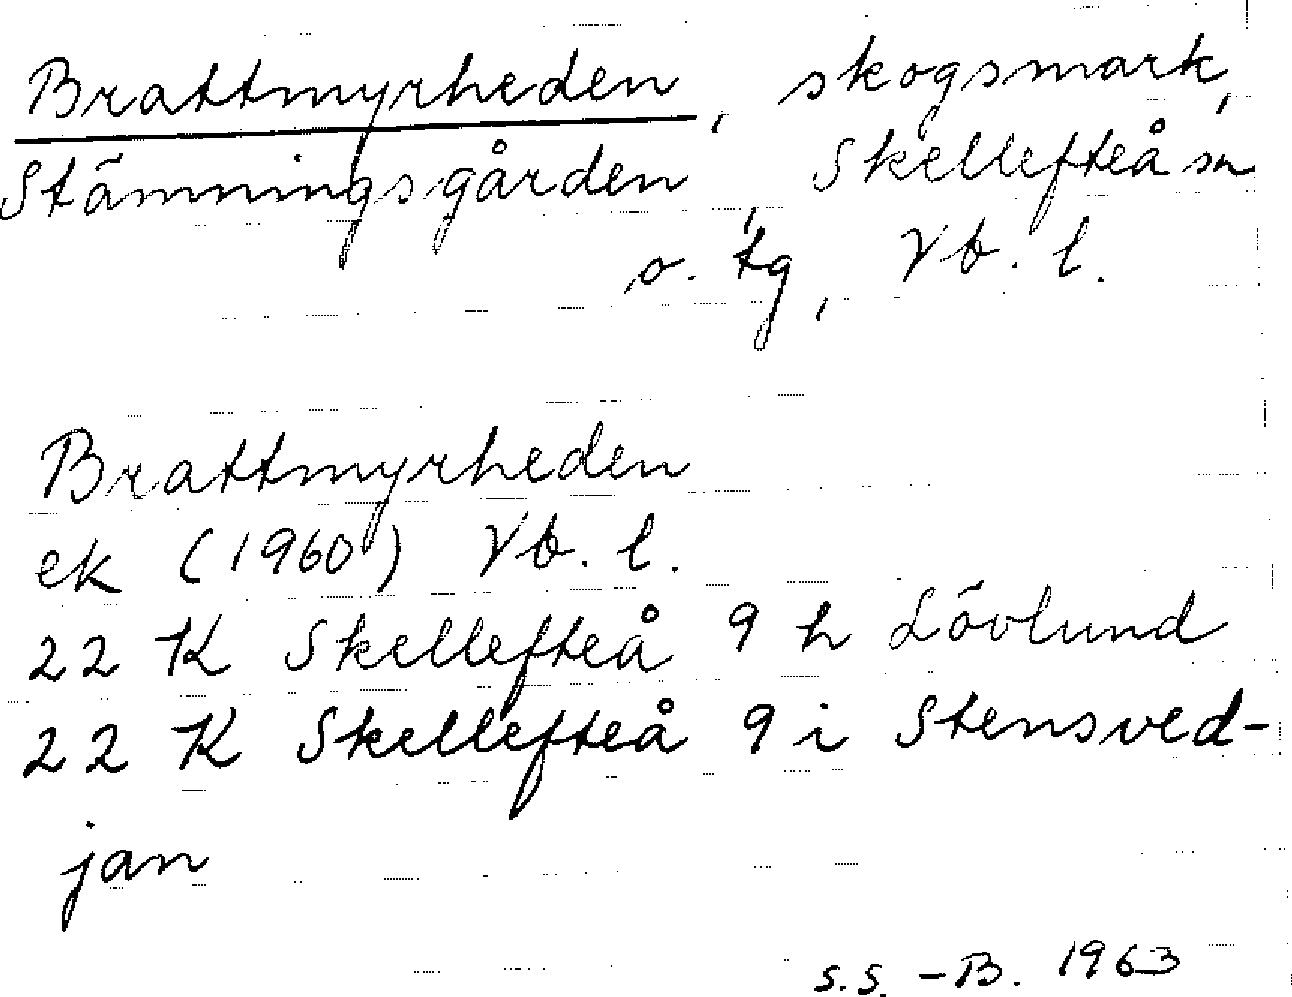 Brattmyrheden, skogsmark,
Stämningsgården, Skellefteå sn
o. tg, Vb. l.
Brattmyrheden
ek (1960) Vb. l.
22 K Skellefteå 9 h Lövlund
22 K Skellefteå 9 i Stensved-
jan
S.S. - B. 1963